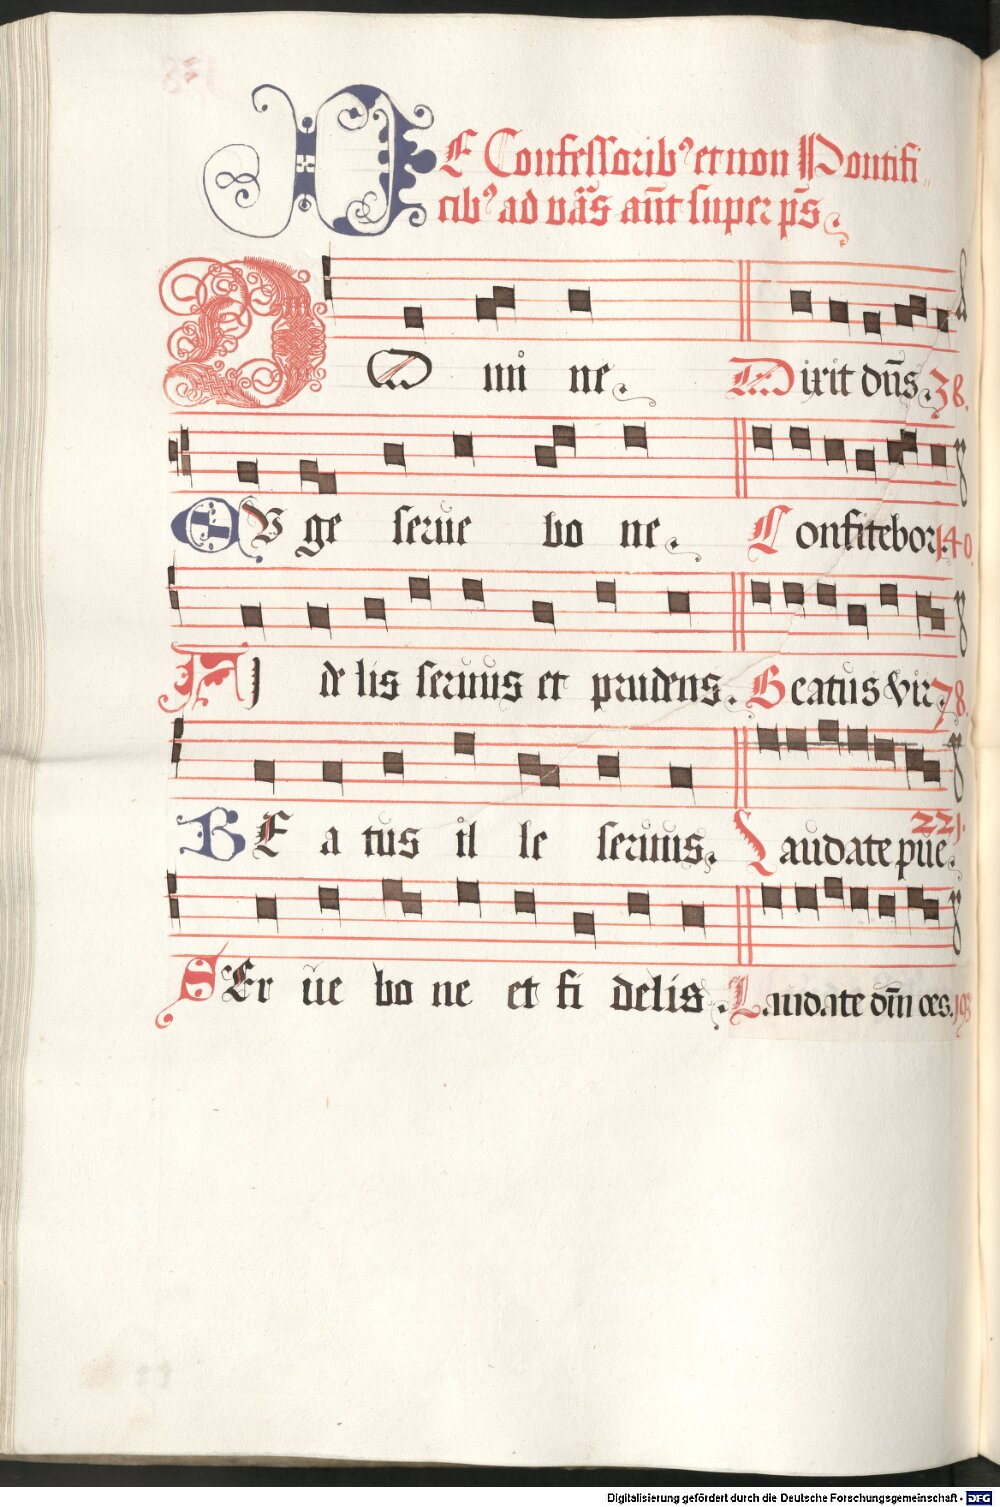 DE Confessorib⁹ et non Pontifi„
cib⁹ ad vās̄ an̄t super ps̄.
DO mi ne. Dixit dn̄s. 38.
EUge serue bo ne. Confitebor. 140.
FI de lis seruus et prudens. Beatus vir. 78.
221.
BE a tus il le seruus. Laudate pūe.
SEr ue bo ne et fi delis. Laudate dn̄m oēs. 193
Digitalisierung gefördert durch die Deutsche Forschungsgemeinschaft - DFG